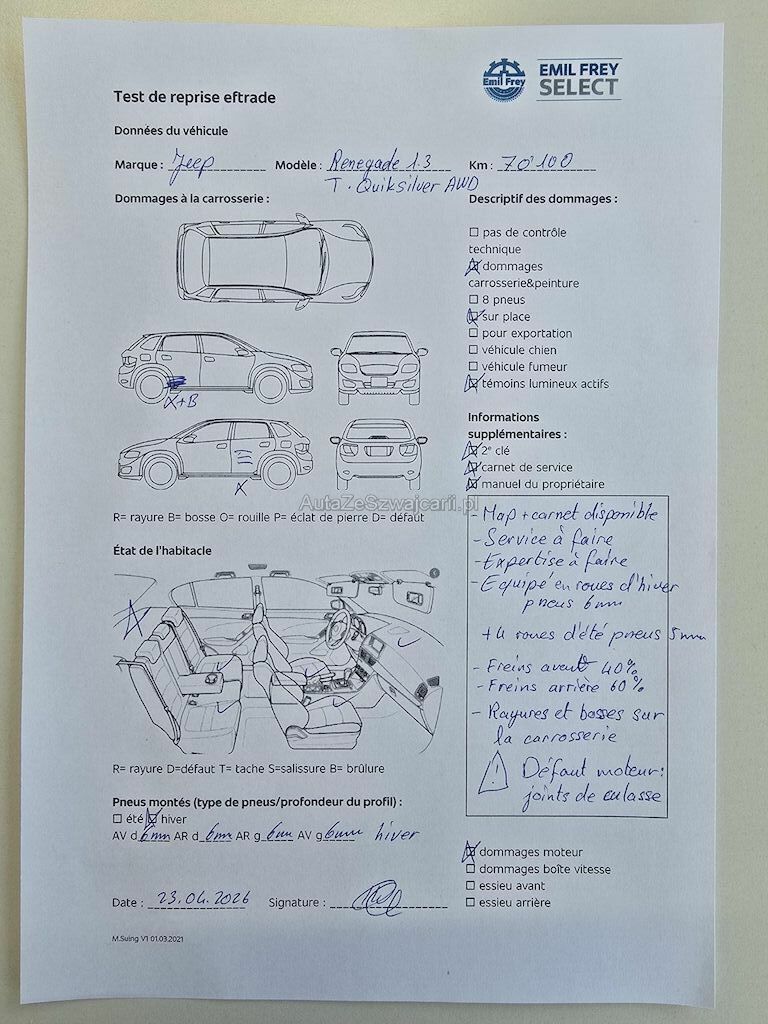 Emil Frey
EMIL FREY
SELECT
Test de reprise eftrade
Données du véhicule
Marque : Jeep Modèle : Renegade 1.3 Km : 70'100
T. Quiksilver AWD
Dommages à la carrosserie :
Descriptif des dommages :
pas de contrôle
technique
dommages
carrosserie&peinture
8 pneus
sur place
pour exportation
véhicule chien
véhicule fumeur
témoins lumineux actifs
X+B
X
R= rayure B= bosse O= rouille P= éclat de pierre D= défaut
Informations
supplémentaires :
2e clé
carnet de service
manuel du propriétaire
AutaZeSzwajcarii.pl
- Map + carnet disponible
- Service à faire
- Expertise à faire
- Equipé en roues d'hiver
pneus 6mm
+ 4 roues d'été pneus 5mm
- Freins avant 40%
- Freins arrière 60%
- Rayures et bosses sur
la carrosserie
! Défaut moteur:
joints de culasse
État de l'habitacle
R= rayure D=défaut T= tache S=salissure B= brûlure
Pneus montés (type de pneus/profondeur du profil) :
été hiver
AV d 6mm AR d 6mm AR g 6mm AV g 6mm hiver
dommages moteur
dommages boîte vitesse
essieu avant
essieu arrière
Date : 23.04.2026 Signature :
M.Suing V1 01.03.2021